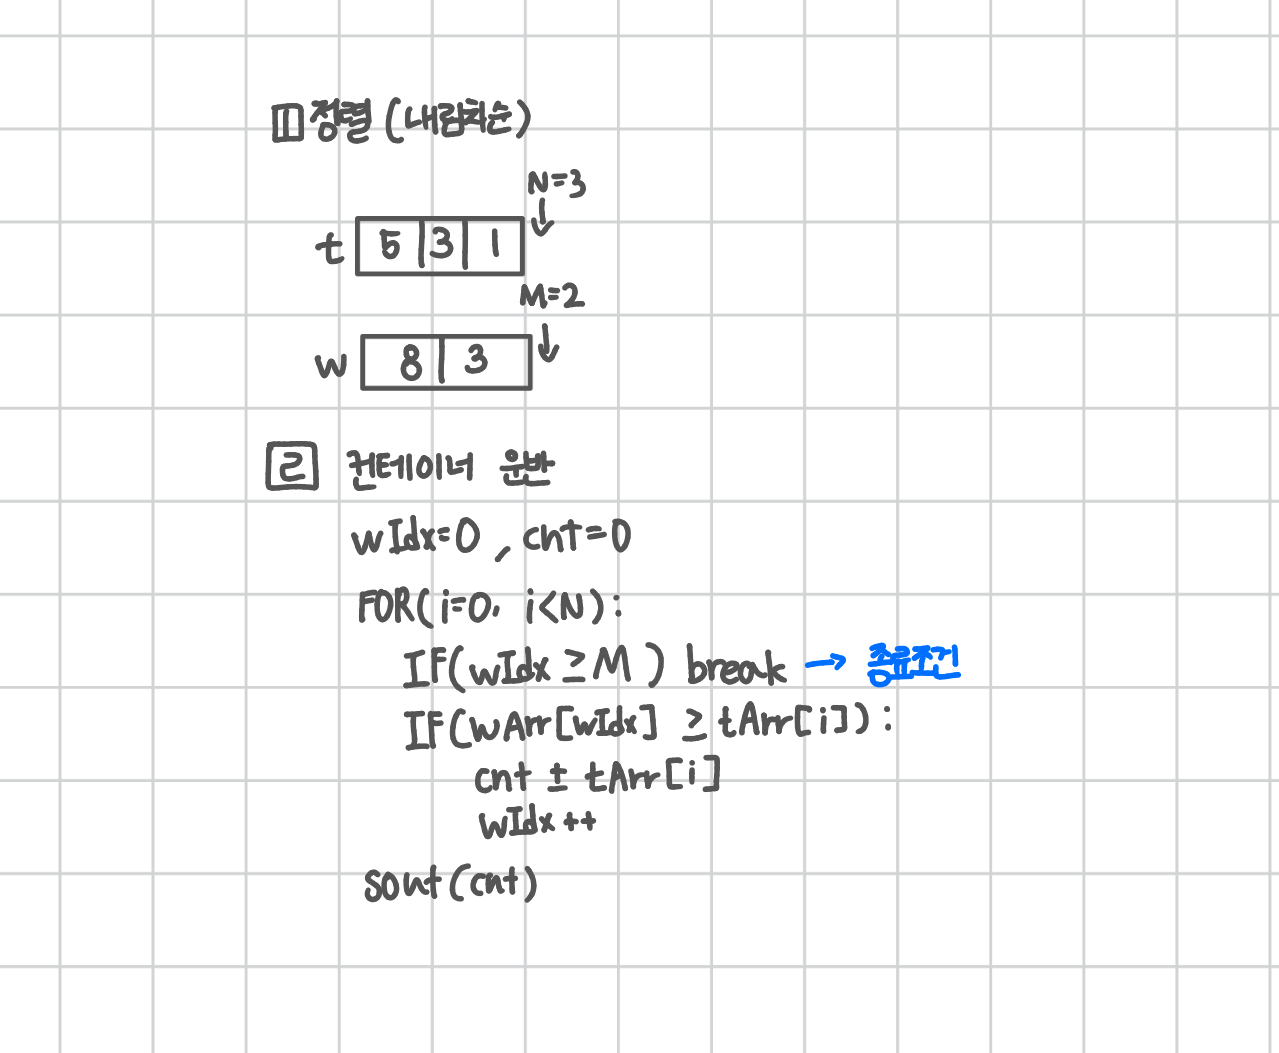 1 정렬 (내림차순)
N=3
↓
t 5 3 1
M=2
↓
w 8 3
2 컨테이너 운반
wIdx=0, cnt=0
FOR(i=0, i<N):
IF(wIdx ≥ M) break → 종료조건
IF(wArr[wIdx] ≥ tArr[i]):
cnt ± tArr[i]
wIdx++
sout(cnt)